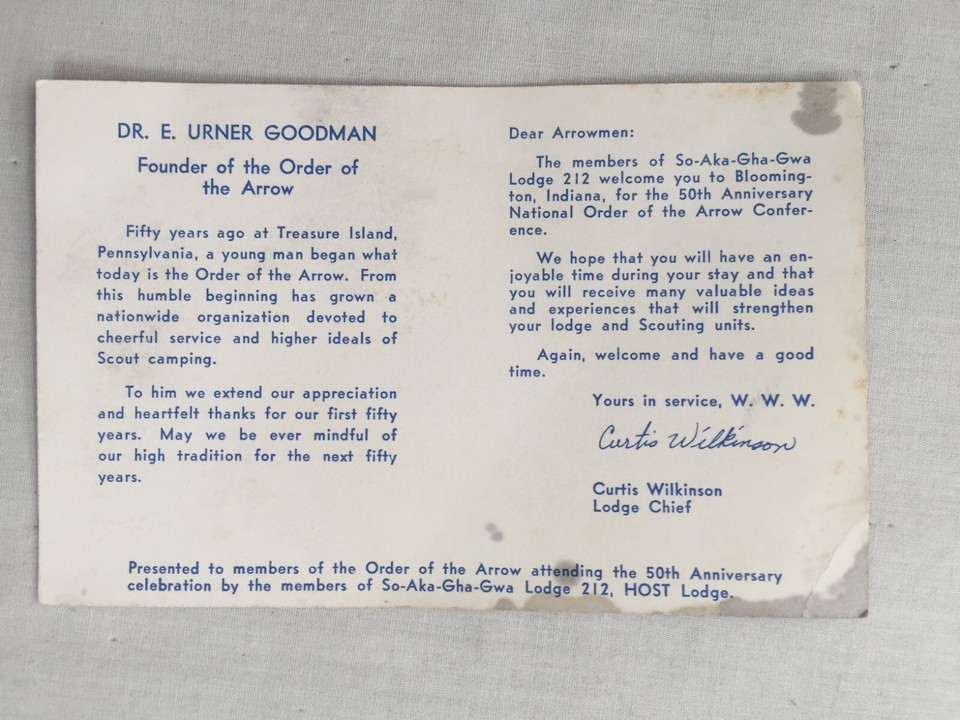 DR. E. URNER GOODMAN
Founder of the Order of
the Arrow
Fifty years ago at Treasure Island,
Pennsylvania, a young man began what
today is the Order of the Arrow. From
this humble beginning has grown a
nationwide organization devoted to
cheerful service and higher ideals of
Scout camping.
To him we extend our appreciation
and heartfelt thanks for our first fifty
years. May we be ever mindful of
our high tradition for the next fifty
years.
Dear Arrowmen:
The members of So-Aka-Gha-Gwa
Lodge 212 welcome you to Blooming-
ton, Indiana, for the 50th Anniversary
National Order of the Arrow Confer-
ence.
We hope that you will have an en-
joyable time during your stay and that
you will receive many valuable ideas
and experiences that will strengthen
your lodge and Scouting units.
Again, welcome and have a good
time.
Yours in service, W. W. W.
Curtis Wilkinson
Curtis Wilkinson
Lodge Chief
Presented to members of the Order of the Arrow attending the 50th Anniversary
celebration by the members of So-Aka-Gha-Gwa Lodge 212, HOST Lodge.